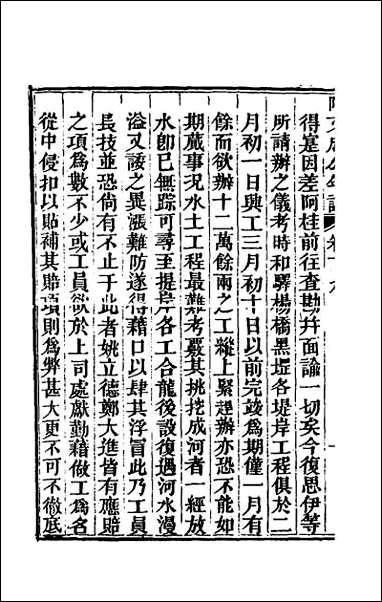 得寔因差阿桂前往查勘并面諭一切矣今復思伊等
所請辦之儀考時和驛楊橋黑堽各堤岸工程俱於二
月初一日興工三月初十日以前完竣為期僅一月有
餘而欲辦十二萬餘兩之工縱上緊趕辦亦恐不能如
期蕆事況水土工程最難考覈其挑挖成河者一經放
水卽已無踪可尋至提岸各工合龍後設復遇河水漫
溢又諉之異漲難防遂得藉口以肆其浮冒此乃工員
長技並恐尚有不止于此者姚立德鄭大進皆有應賠
之項為數不少或工員欲於上司處獻勤藉做工為名
從中侵扣以貼補其賠項則為弊甚大更不可不徹底